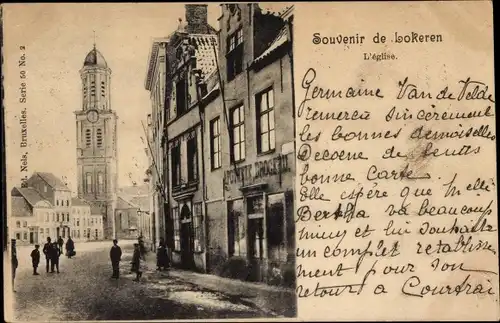 Souvenir de Lokeren
L'église.
Ed. Nels, Bruxelles, Serie 50 No. 2
Germaine Van de Velde
remercie sincèrement
les bonnes demoiselles
Decoene de leurs
bonne carte.
Elle espère que Melle
Bertha va beaucoup
mieux et lui souhaite
un complet rétablisse
ment pour son
retour à Courtrai